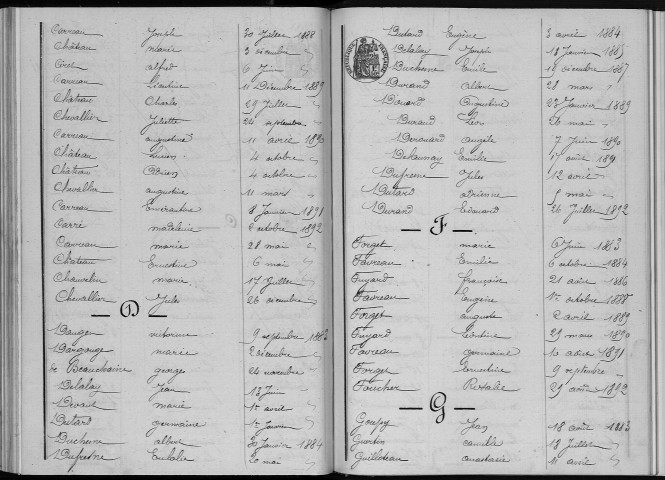 Carreau Joseph 30 Juillet 1888
Château marie 3 décembre "
Cros alfred 6 Juin "
Carreau Léontine 11 Décembre 1889
Château Charles 29 Juillet "
Chevallier Juliette 24 septembre "
Carreau augustine 11 avril 1890
Château Lucien 4 octobre "
Château Adrien 4 octobre "
Chevallier augustine 11 mars "
Carreau 8 Janvier 1891
Carré madeleine 2 octobre 1892
Carreau marie 28 mai "
Château Ernestine 6 mai "
Chauvelin marie 17 Juillet "
Chevallier Jules 26 décembre "
D
Dauge victorine 9 septembre 1883
Dargouge marie 2 décembre "
de Beauchaine georges 24 novembre "
Delalay Jean 13 Juin "
Devant marie 1er avril "
Dutard germaine 1er Janvier "
Duchesne alfred 30 Janvier 1884
Dufresne Eulalie 20 mai "
Dutard Eugène 3 avril 1884
Delalay Joseph 18 Janvier 1885
Duchesne Emile 19 décembre 1887
Durand albert 28 mars "
Douard augustine 23 Janvier 1889
Durand Léon 26 mai "
Derouard angèle 7 Juin 1890
Delaunay Emilie 1er août 1891
Dufresne Jules 12 avril "
Dutard adrienne 8 mai "
Durand Edouard 26 Juillet 1892
F
Forget marie 6 Juin 1883
Favreau Emilie 6 octobre 1884
Fuyard françois 21 août 1886
Favreau Eugène 1er octobre 1888
Forget auguste 2 avril 1889
Fuyard Léontine 29 mars 1890
Favreau germaine 10 août 1891
Forget Ernestine 9 septembre "
Foucher Rosalie 29 août 1892
G
Goupy Jean 18 août 1883
Guertin camille 18 Juillet "
Guilloteau anastasie 11 avril "